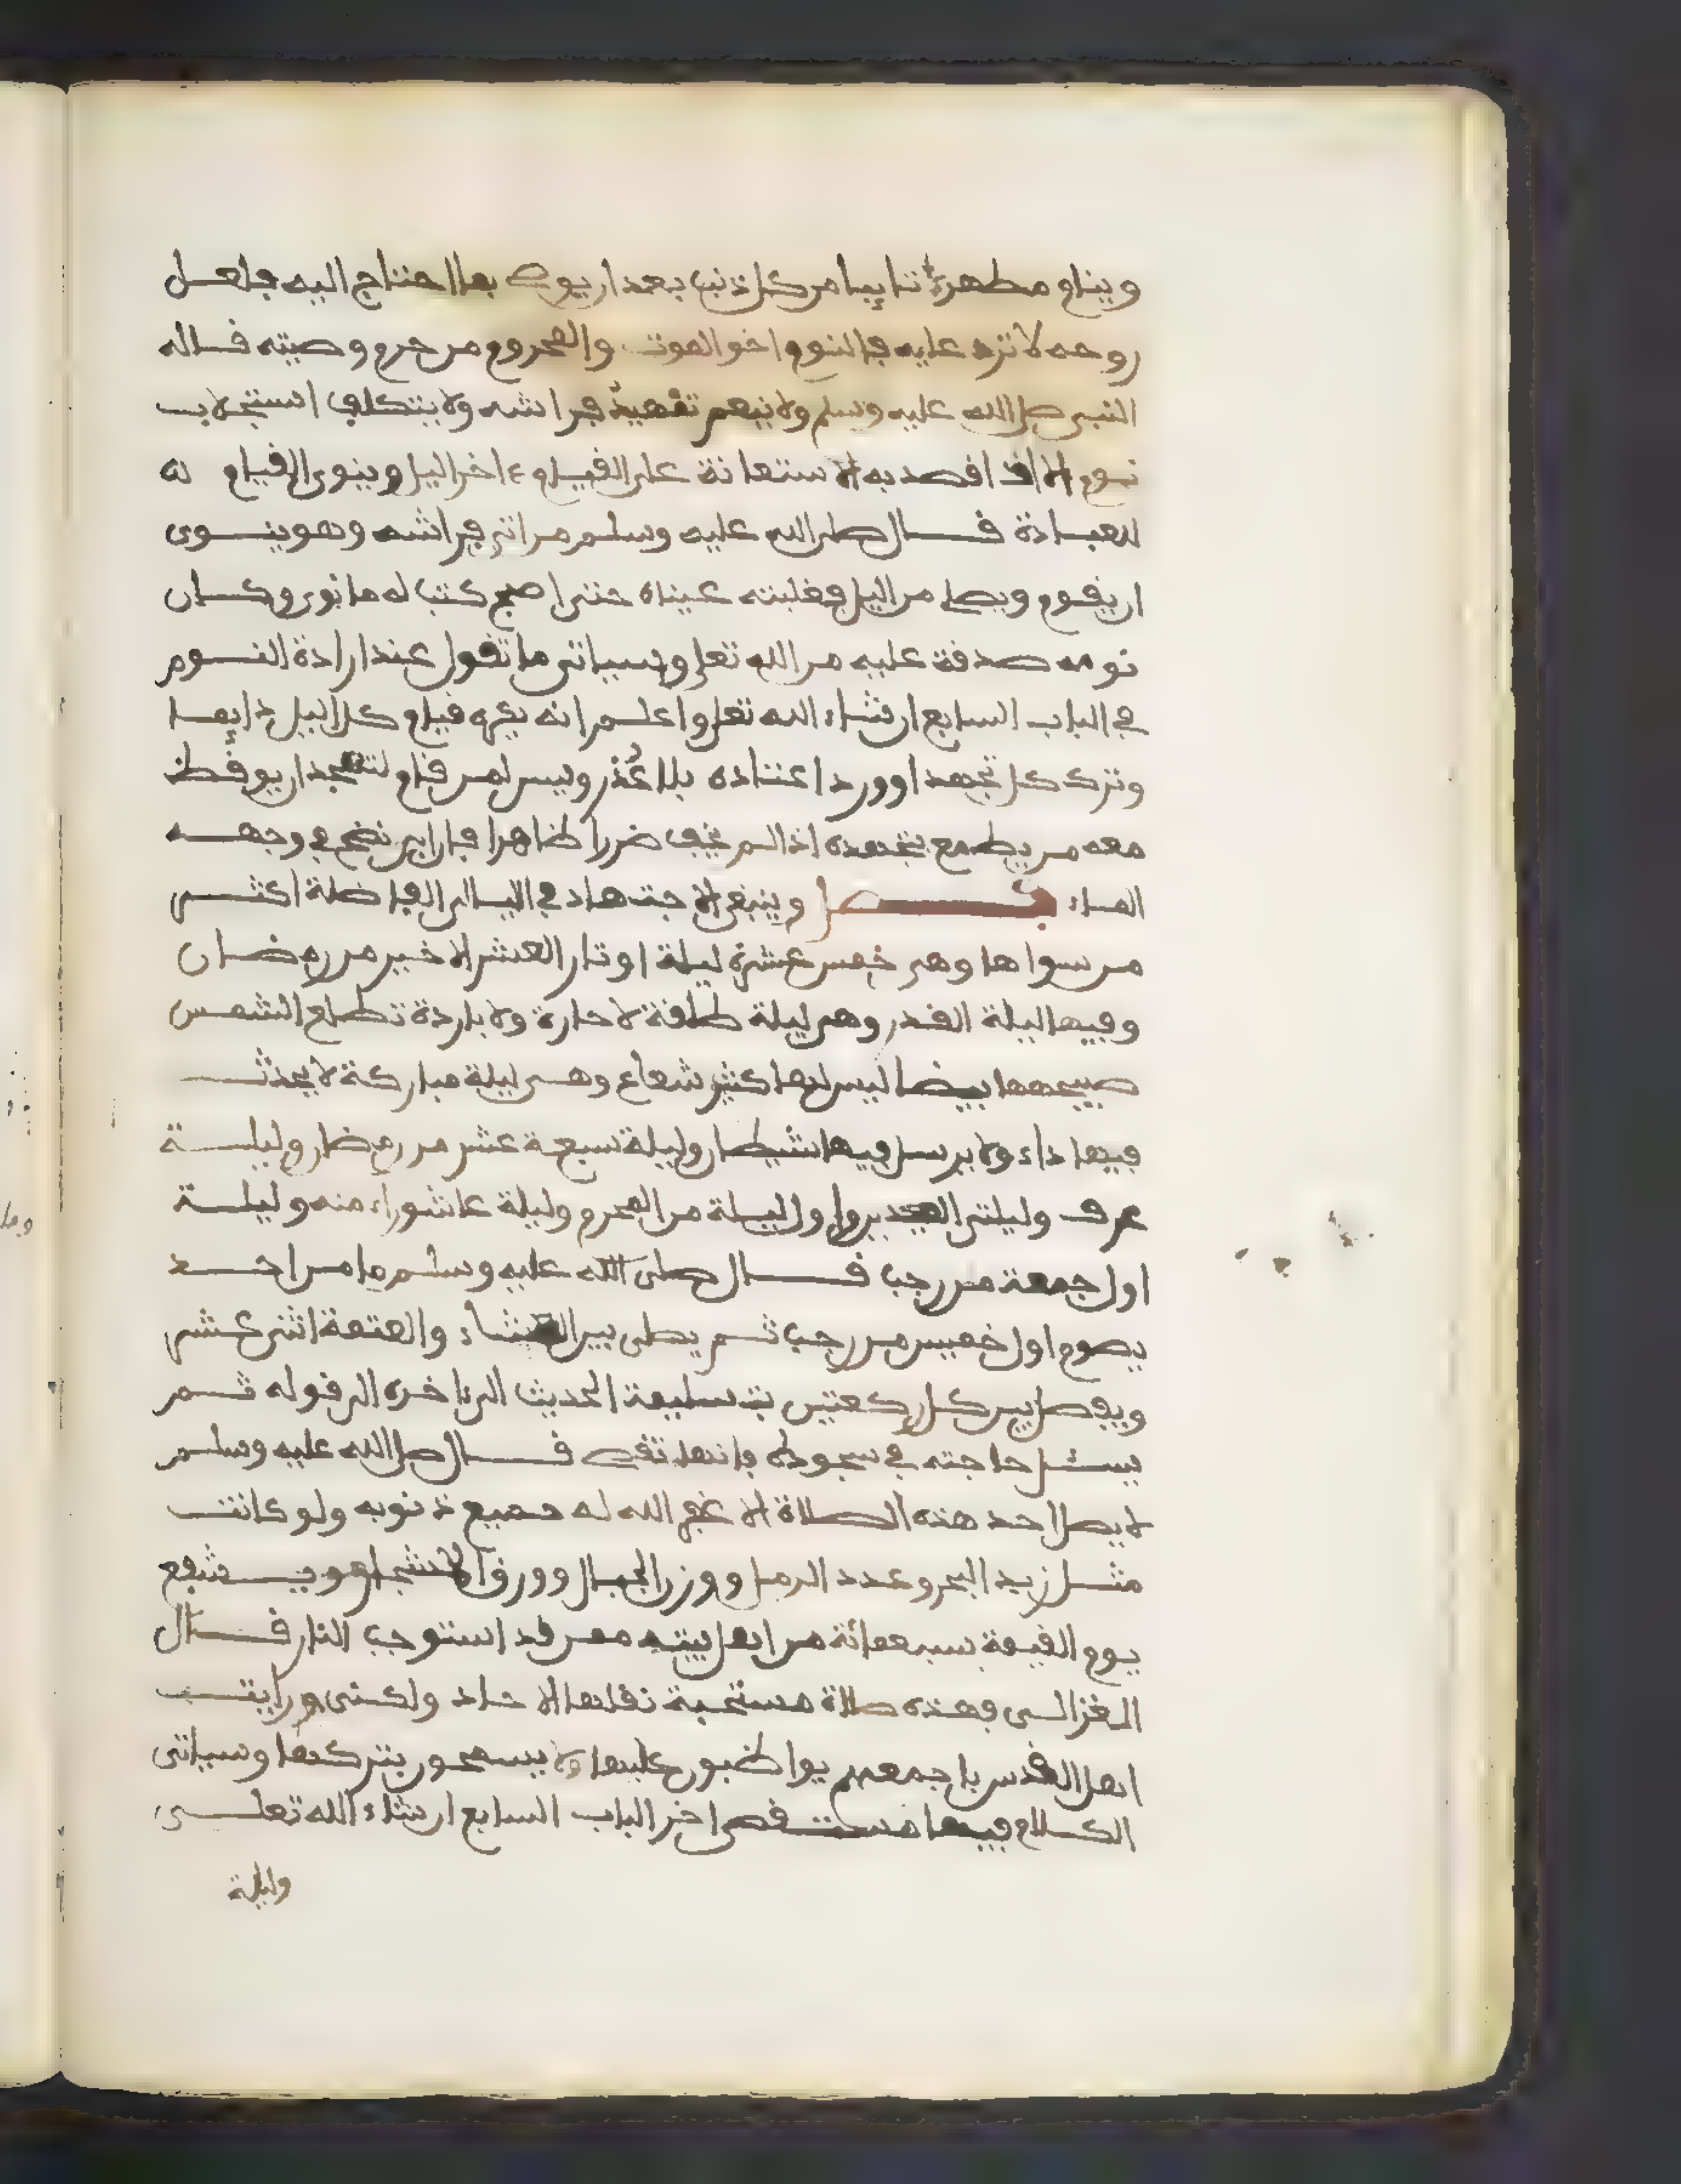 وينام مطهرة تايبا من كل ذنب بعد ان يوصي بما احتاج اليه فلعل
روحه لا ترد عليه فالنوم اخو الموت والمحروم من حرم وصيته قاله
النبي صلى الله عليه وسلم ولا ينعم تمهيد فراشه ولا يتكلف استجلاب
نوم الا اذا قصد به الاستعانة على القيام ءاخر اليل وينوي القيام له
للعبادة قال صلى الله عليه وسلم من اتى فراشه وهو ينوي
ان يقوم ويصلي من اليل فغلبته عيناه حتى اصبح كتب له ما نوى وكان
نومه صدقة عليه من الله تعلى وسياتي ما تقول عند ارادة النوم
في الباب السابع ان شاء الله تعلى واعلم انه يكره قيام كل اليل دايما
وترك كل تهجد او ورد اعتاده بلا عذر ويسن لمن قام لتهجد ان يوقظ
معه من يطمع بتهجده اذا لم يخف ضررا ظاهرا فان ابى نضح في وجهه
الماء فصل وينبغي الاجتهاد في اليالي الفاضلة اكثر
من سواها وهي خمس عشرة ليلة اوتار العشر الاخير من رمضان
وفيها ليلة القدر وهي ليلة طلقة لا حارة ولا باردة تطلع الشمس
صبيحها بيضا ليس لها كثير شعاع وهي ليلة مباركة لا يحدث
فيها داء ولا يرسل فيها شيطان وليلة سبعة عشر من رمضان وليلة
عرف وليلتي العيدين واول ليلة من المحرم وليلة عاشوراء منه وليلة
اول جمعة من رجب قال صلى الله عليه وسلم ما من احد
يصوم اول خميس من رجب ثم يصلى بين العشاء والعتمة اثني عشر
ويفصل بين كل ركعتين بتسليمة الحديث الى ءاخره الى قوله ثم
يسئل حاجته في سجوده فانها تقضى قال صلى الله عليه وسلم
لا يصل احد هذه الصلاة الا غفر الله له جميع ذنوبه ولو كانت
مثل زبد البحر وعدد الرمل ووزن الجبال وورق الاشجار ويشفع
يوم القيمة سبعمائة من اهل بيته ممن قد استوجب النار قال
الغزالي فهذه صلاة مستحبة نقلها الاحاد ولكني رايت
اهل القدس باجمعهم يواظبون عليها ولا يسمحون بتركها وسياتي
الكلام فيها مستقصى اخر الباب السابع ان شاء الله تعلى
وليلة